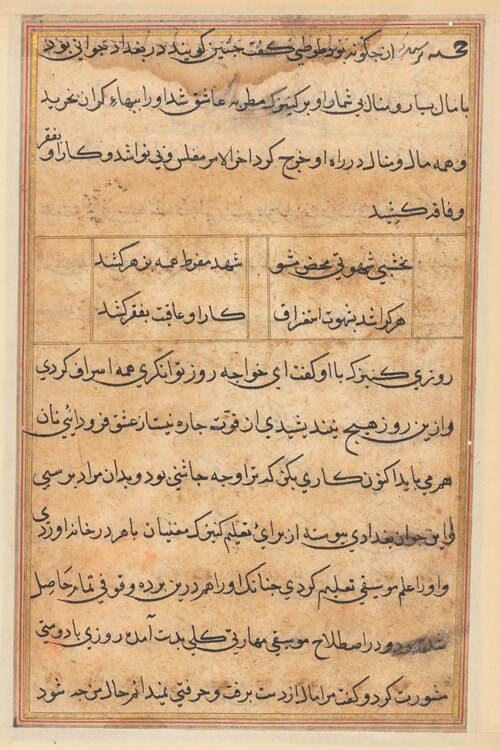 خجسته پرسید از چگونه بود طوطی گفت چنین گویند در بغداد جوانی بود
با مال بسیار و منال بی شمار او بر کنیزک مطربه عاشق شد او را ببهاء گران بخرید
و همه مال و منال در راه او خرج کرد اخر الامر مفلس و بی نوا شد و کار او بفقر
و فاقه کشید
نخشبی شهوتی محض مشو شهد مفرط همه بزهر کشد
هر کرا شد بشهوت استغراق کار او عاقبت بفقر کشد
روزی کنیزک با او گفت ای خواجه روز توانکری همه اسراف کردی
و ازین روز هیچ نیندیشیدی از قوت چاره نیست از عشق فرود آئی نان
هم می باید اکنون کاری بکن که ترا وجه چاشنی بود و بدان مراد برسی
و این جوان بغدادی پیوسته از برای تعلیم کنیزک مغنیان ماهر در خانه اوردی
و او را علم موسیقی تعلیم کردی چنانک او را هم درین پرده وقوفی تمام حاصل
شده بود و در اصطلاح موسیقی مهارتی کلی بدست آمده روزی با دوستی
مشورت کرد و گفت مرا مال از دست برفت و حرفتی نمیدانم حال من چه شود